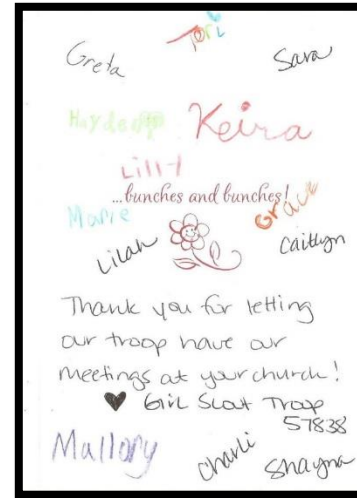 Tori
Greta
Sara
Keira
Lilly
...bunches and bunches!
Marie
Grace
Lilah
Caitlyn
Thank you for letting
our troop have our
meetings at your church!
♥ Girl Scout Troop
57838
Mallory
Charli
Shayna